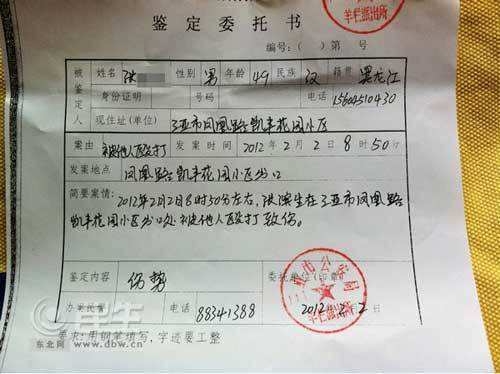 羊栏派出所
鉴定委托书
编号:( )第 号
被鉴定人 姓名 洪 性别 男 年龄 49 民族 汉 籍贯 黑龙江
身份证明 号码 电话 15604510430
现住址(单位) 三亚市凤凰路凯丰花园小区
案由 被他人殴打 发案时间 2012年2月2日8时50分
发案地点 凤凰路凯丰花园小区出口
简要案情:
2012年2月2日8时50分左右,洪滨生在三亚市凤凰路
凯丰花园小区出口处被他人殴打致伤。
鉴定内容 伤势 委托单位(印章)
市公安局
羊栏派出所
办案民警 电话 88341388 2012年2月2日
要求:用钢笔填写,字迹要工整
东北网 www.dbw.cn